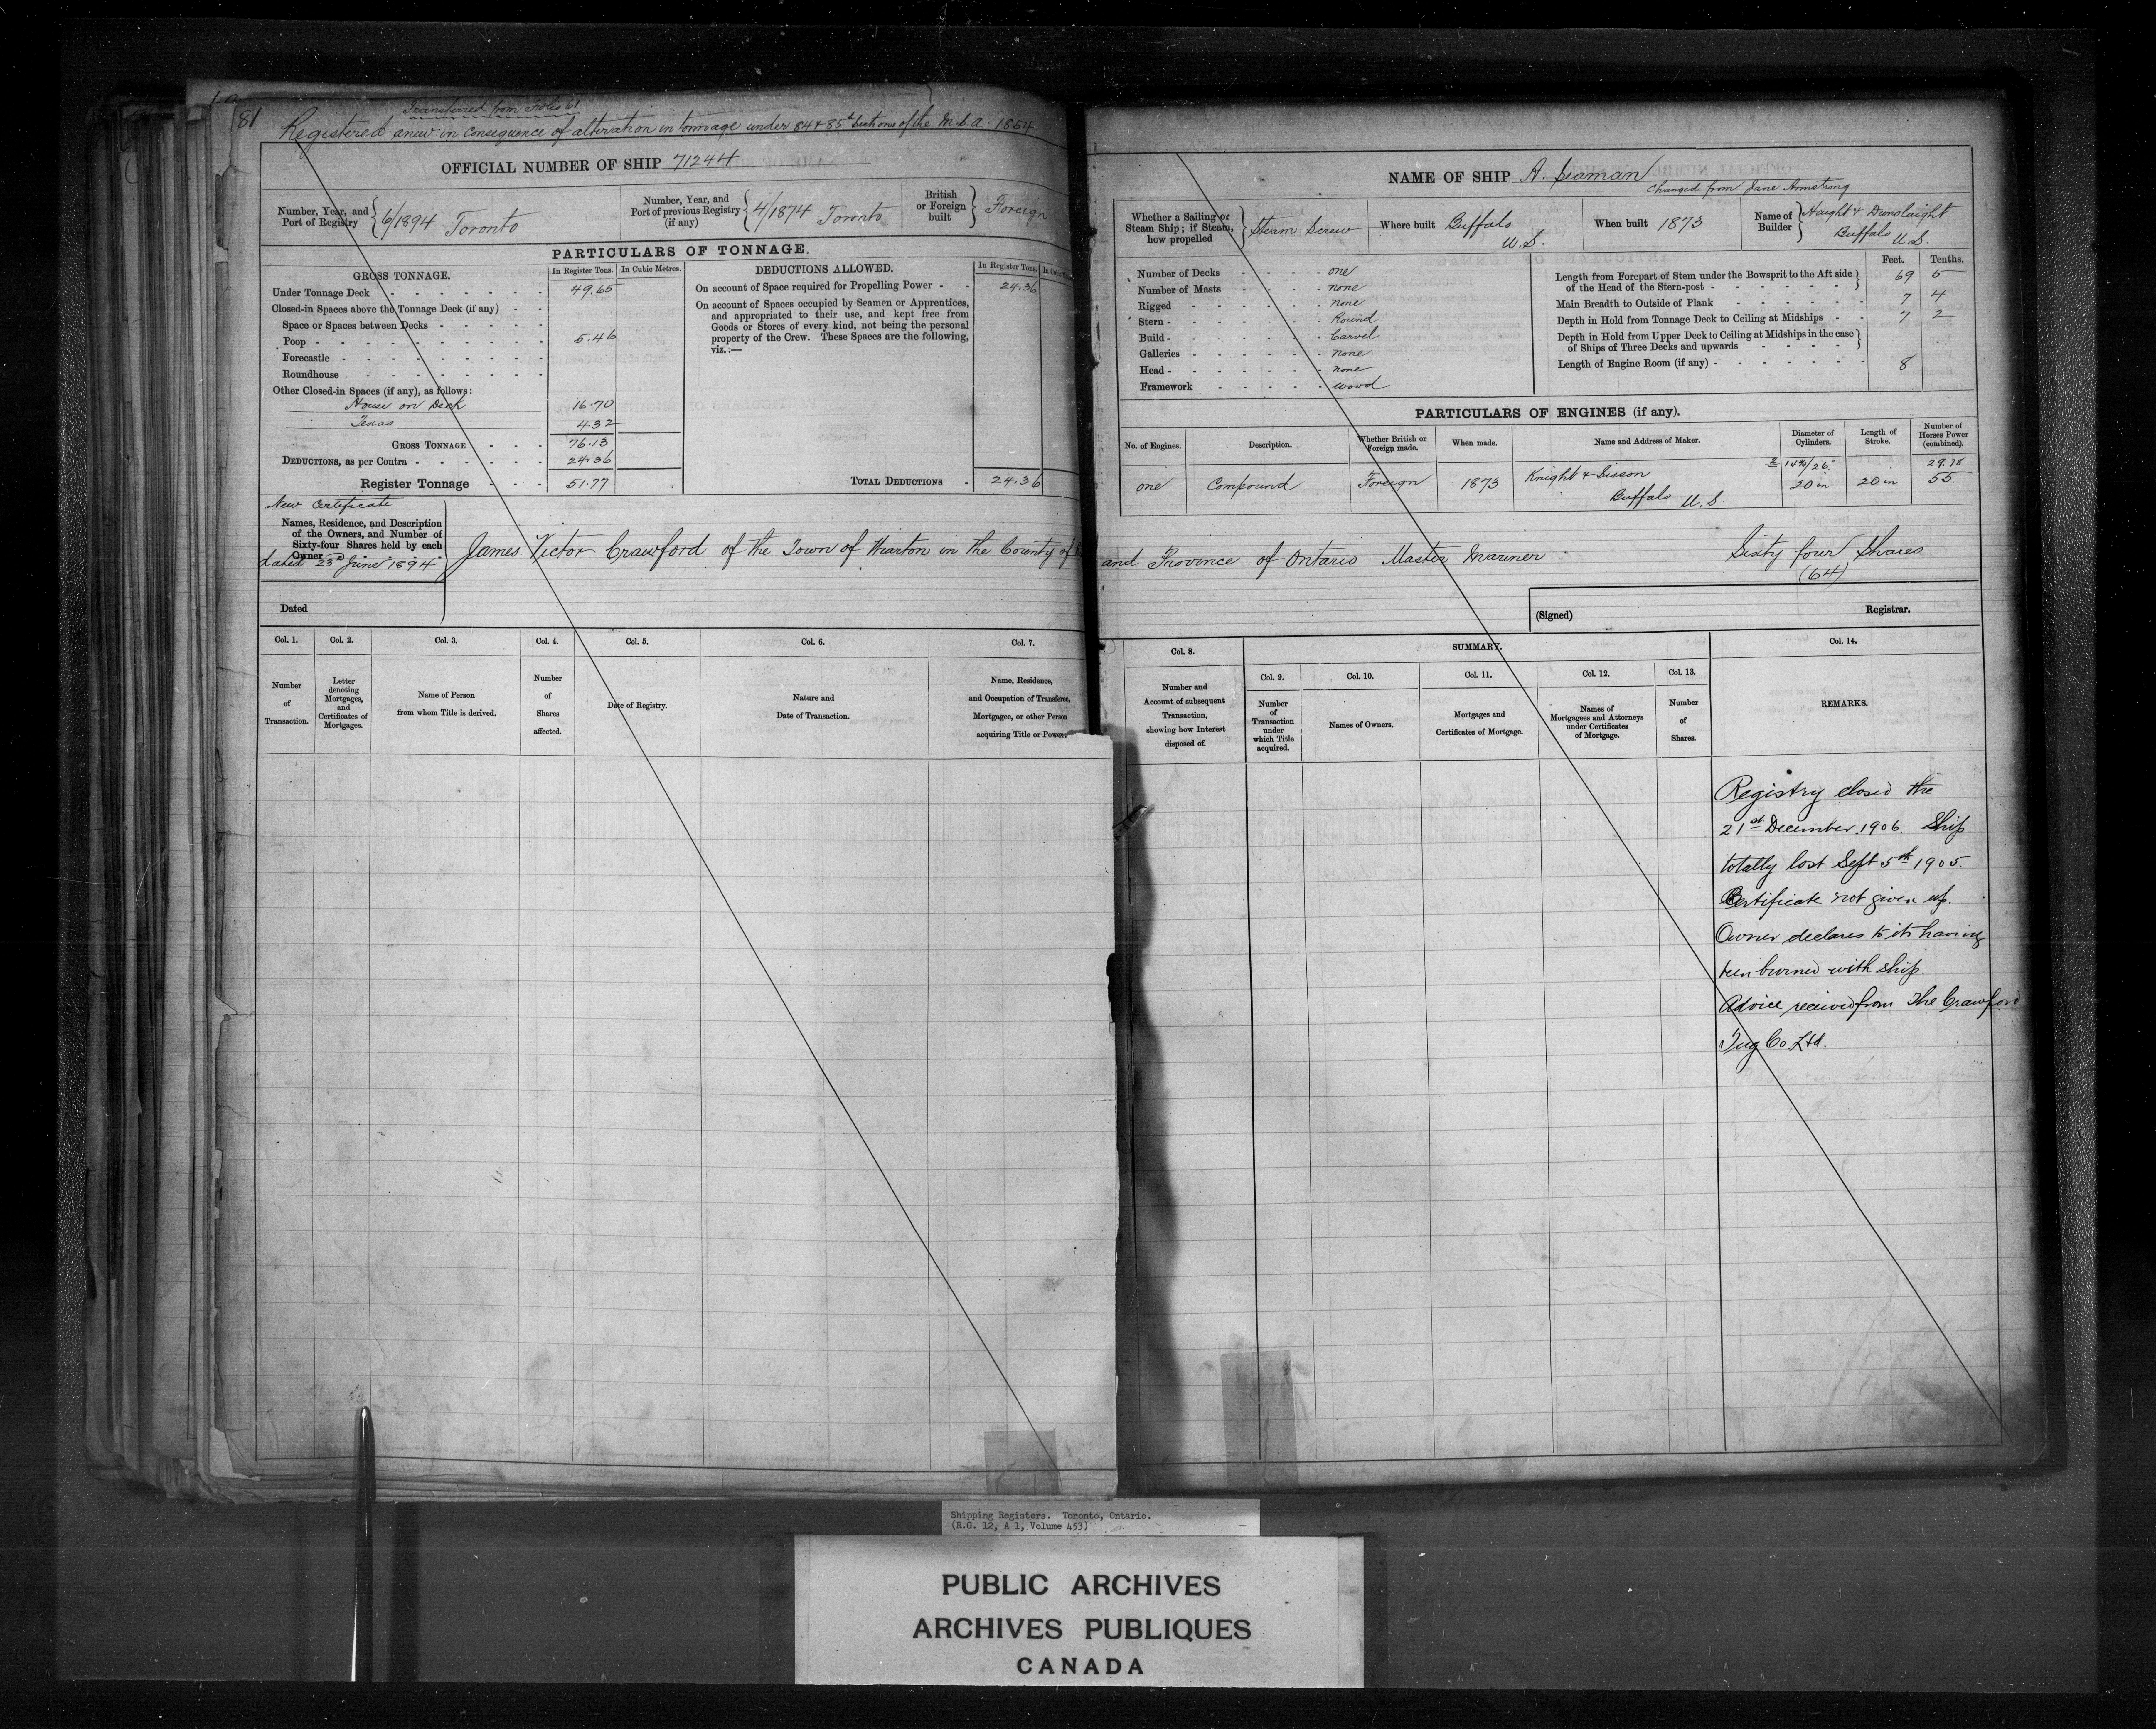 81
Transferred from Folio 61
Registered anew in Consequence of alteration in tonnage under 84 & 85th Sections of the M.S.A. 1854
OFFICIAL NUMBER OF SHIP 71244
Number, Year, and Port of Registry 6/1894 Toronto
Number, Year, and Port of previous Registry (if any) 4/1874 Toronto
British or Foreign built Foreign
PARTICULARS OF TONNAGE.
GROSS TONNAGE. In Register Tons. In Cubic Metres.
Under Tonnage Deck 49.65
Closed-in Spaces above the Tonnage Deck (if any)
Space or Spaces between Decks
Poop 5.46
Forecastle
Roundhouse
Other Closed-in Spaces (if any), as follows:
House on Deck 16.70
Texas 4.32
GROSS TONNAGE 76.13
DEDUCTIONS, as per Contra 24.36
Register Tonnage 51.77
DEDUCTIONS ALLOWED. In Register Tons.
On account of Space required for Propelling Power 24.36
On account of Spaces occupied by Seamen or Apprentices,
and appropriated to their use, and kept free from
Goods or Stores of every kind, not being the personal
property of the Crew. These Spaces are the following,
viz.:—
TOTAL DEDUCTIONS 24.36
New Certificate
Names, Residence, and Description
of the Owners, and Number of
Sixty-four Shares held by each
Owner
dated 23rd June 1894
James Victor Crawford of the Town of Wiarton in the County of
Dated
Col. 1. Col. 2. Col. 3. Col. 4. Col. 5. Col. 6. Col. 7.
Number of Transaction.
Letter denoting Mortgages, and Certificates of Mortgages.
Name of Person from whom Title is derived.
Number of Shares affected.
Date of Registry.
Nature and Date of Transaction.
Name, Residence, and Occupation of Transferee, Mortgagee, or other Person acquiring Title or Power.
NAME OF SHIP A. Seaman
Changed from Jane Armstrong
Whether a Sailing or Steam Ship; if Steam, how propelled Steam Screw
Where built Buffalo U.S.
When built 1873
Name of Builder Haight & Dunslaight Buffalo U.S.
Number of Decks one
Number of Masts none
Rigged none
Stern Round
Build Carvel
Galleries none
Head none
Framework wood
Feet. Tenths.
Length from Forepart of Stem under the Bowsprit to the Aft side of the Head of the Stern-post 69 5
Main Breadth to Outside of Plank 7 4
Depth in Hold from Tonnage Deck to Ceiling at Midships 7 2
Depth in Hold from Upper Deck to Ceiling at Midships in the case of Ships of Three Decks and upwards
Length of Engine Room (if any) 8
PARTICULARS OF ENGINES (if any).
No. of Engines. Description. Whether British or Foreign made. When made. Name and Address of Maker. Diameter of Cylinders. Length of Stroke. Number of Horses Power (combined).
29.78
one Compound Foreign 1873 Knight & Sisson Buffalo U.S. 20 in 20 in 55.
and Province of Ontario Master Mariner Sixty four Shares
(64)
(Signed) Registrar.
Col. 8. SUMMARY. Col. 14.
Col. 9. Col. 10. Col. 11. Col. 12. Col. 13.
Number and Account of subsequent Transaction, showing how Interest disposed of.
Number of Transaction under which Title acquired.
Names of Owners.
Mortgages and Certificates of Mortgage.
Names of Mortgagees and Attorneys under Certificates of Mortgage.
Number of Shares.
REMARKS.
Registry closed the
21st December 1906 Ship
totally lost Sept 5th 1905.
Certificate not given up.
Owner declares to its having
been burned with ship.
Advice received from The Crawford
Tug Co Ltd.
Shipping Registers. Toronto, Ontario.
(R.G. 12, A 1, Volume 453)
PUBLIC ARCHIVES
ARCHIVES PUBLIQUES
CANADA